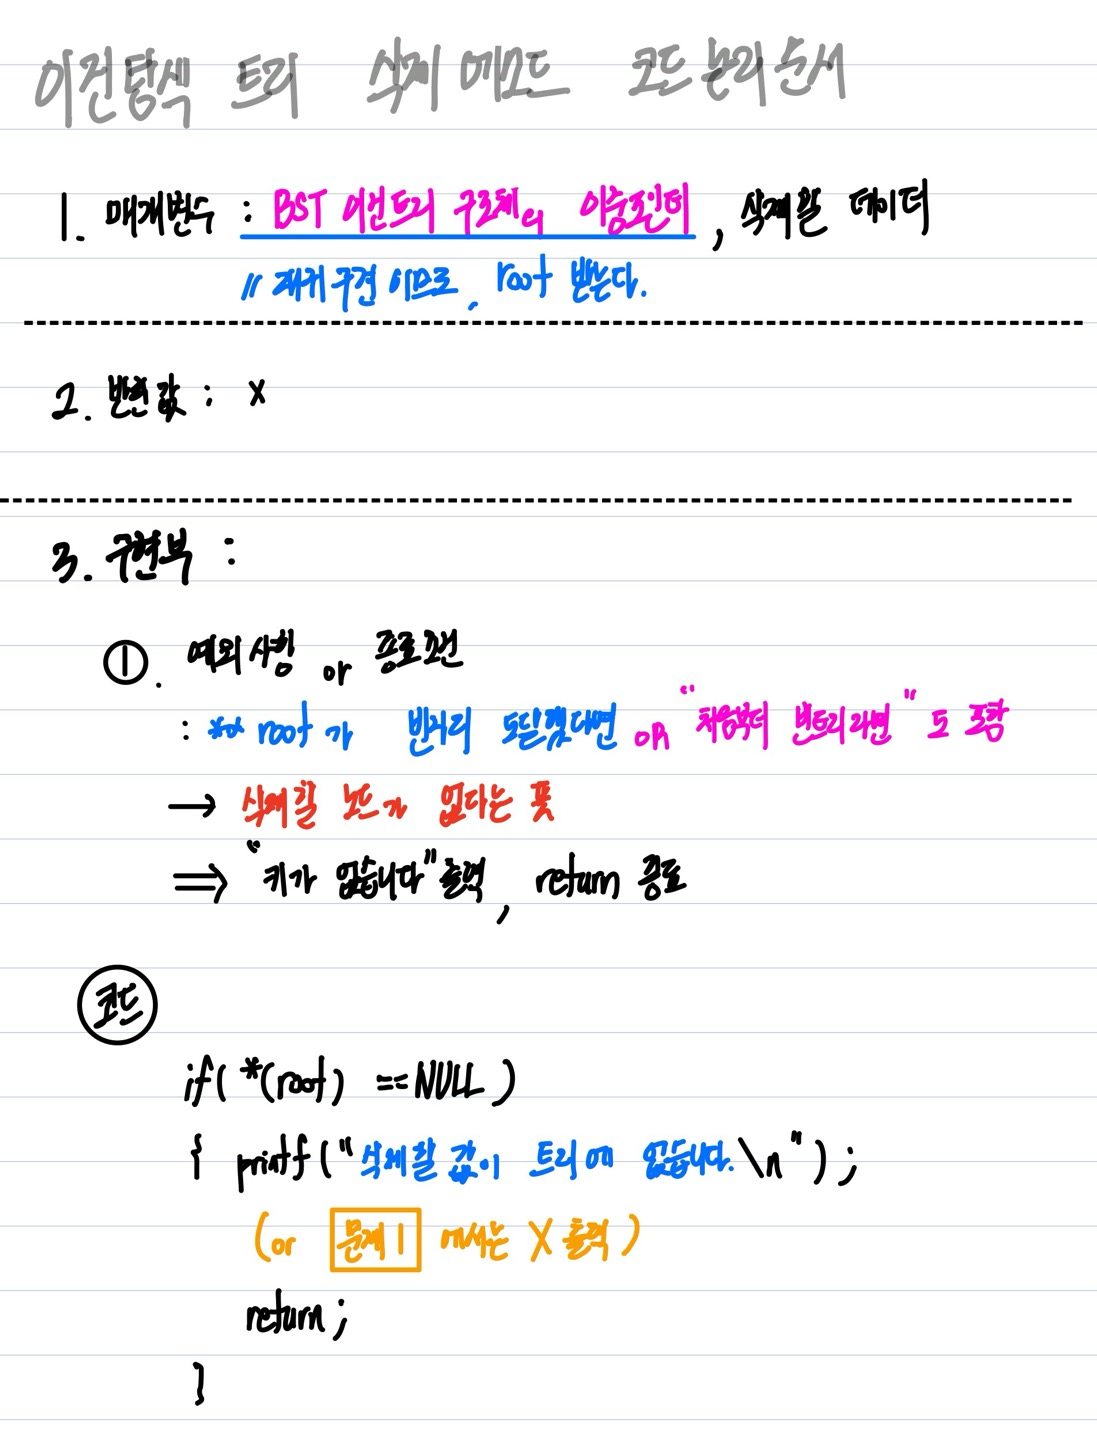 이진탐색 트리 삭제 메소드 코드 논리 순서
1. 매개변수 : BST 이진트리 구조체의 이중포인터, 삭제할 데이터
// 재귀 구현 이므로, root 받는다.
2. 반환값 : X
3. 구현부 :
①. 예외사항 or 종료조건
: ** root가 빈자리 도달했다면 or "처음부터 빈트리라면"도 포함
→ 삭제할 노드가 없다는 뜻
⇒ "키가 없습니다" 출력, return 종료
코드
if( *(root) == NULL )
{ printf("삭제할 값이 트리에 없습니다.\n");
(or 문제 1 에서는 X 출력)
return;
}